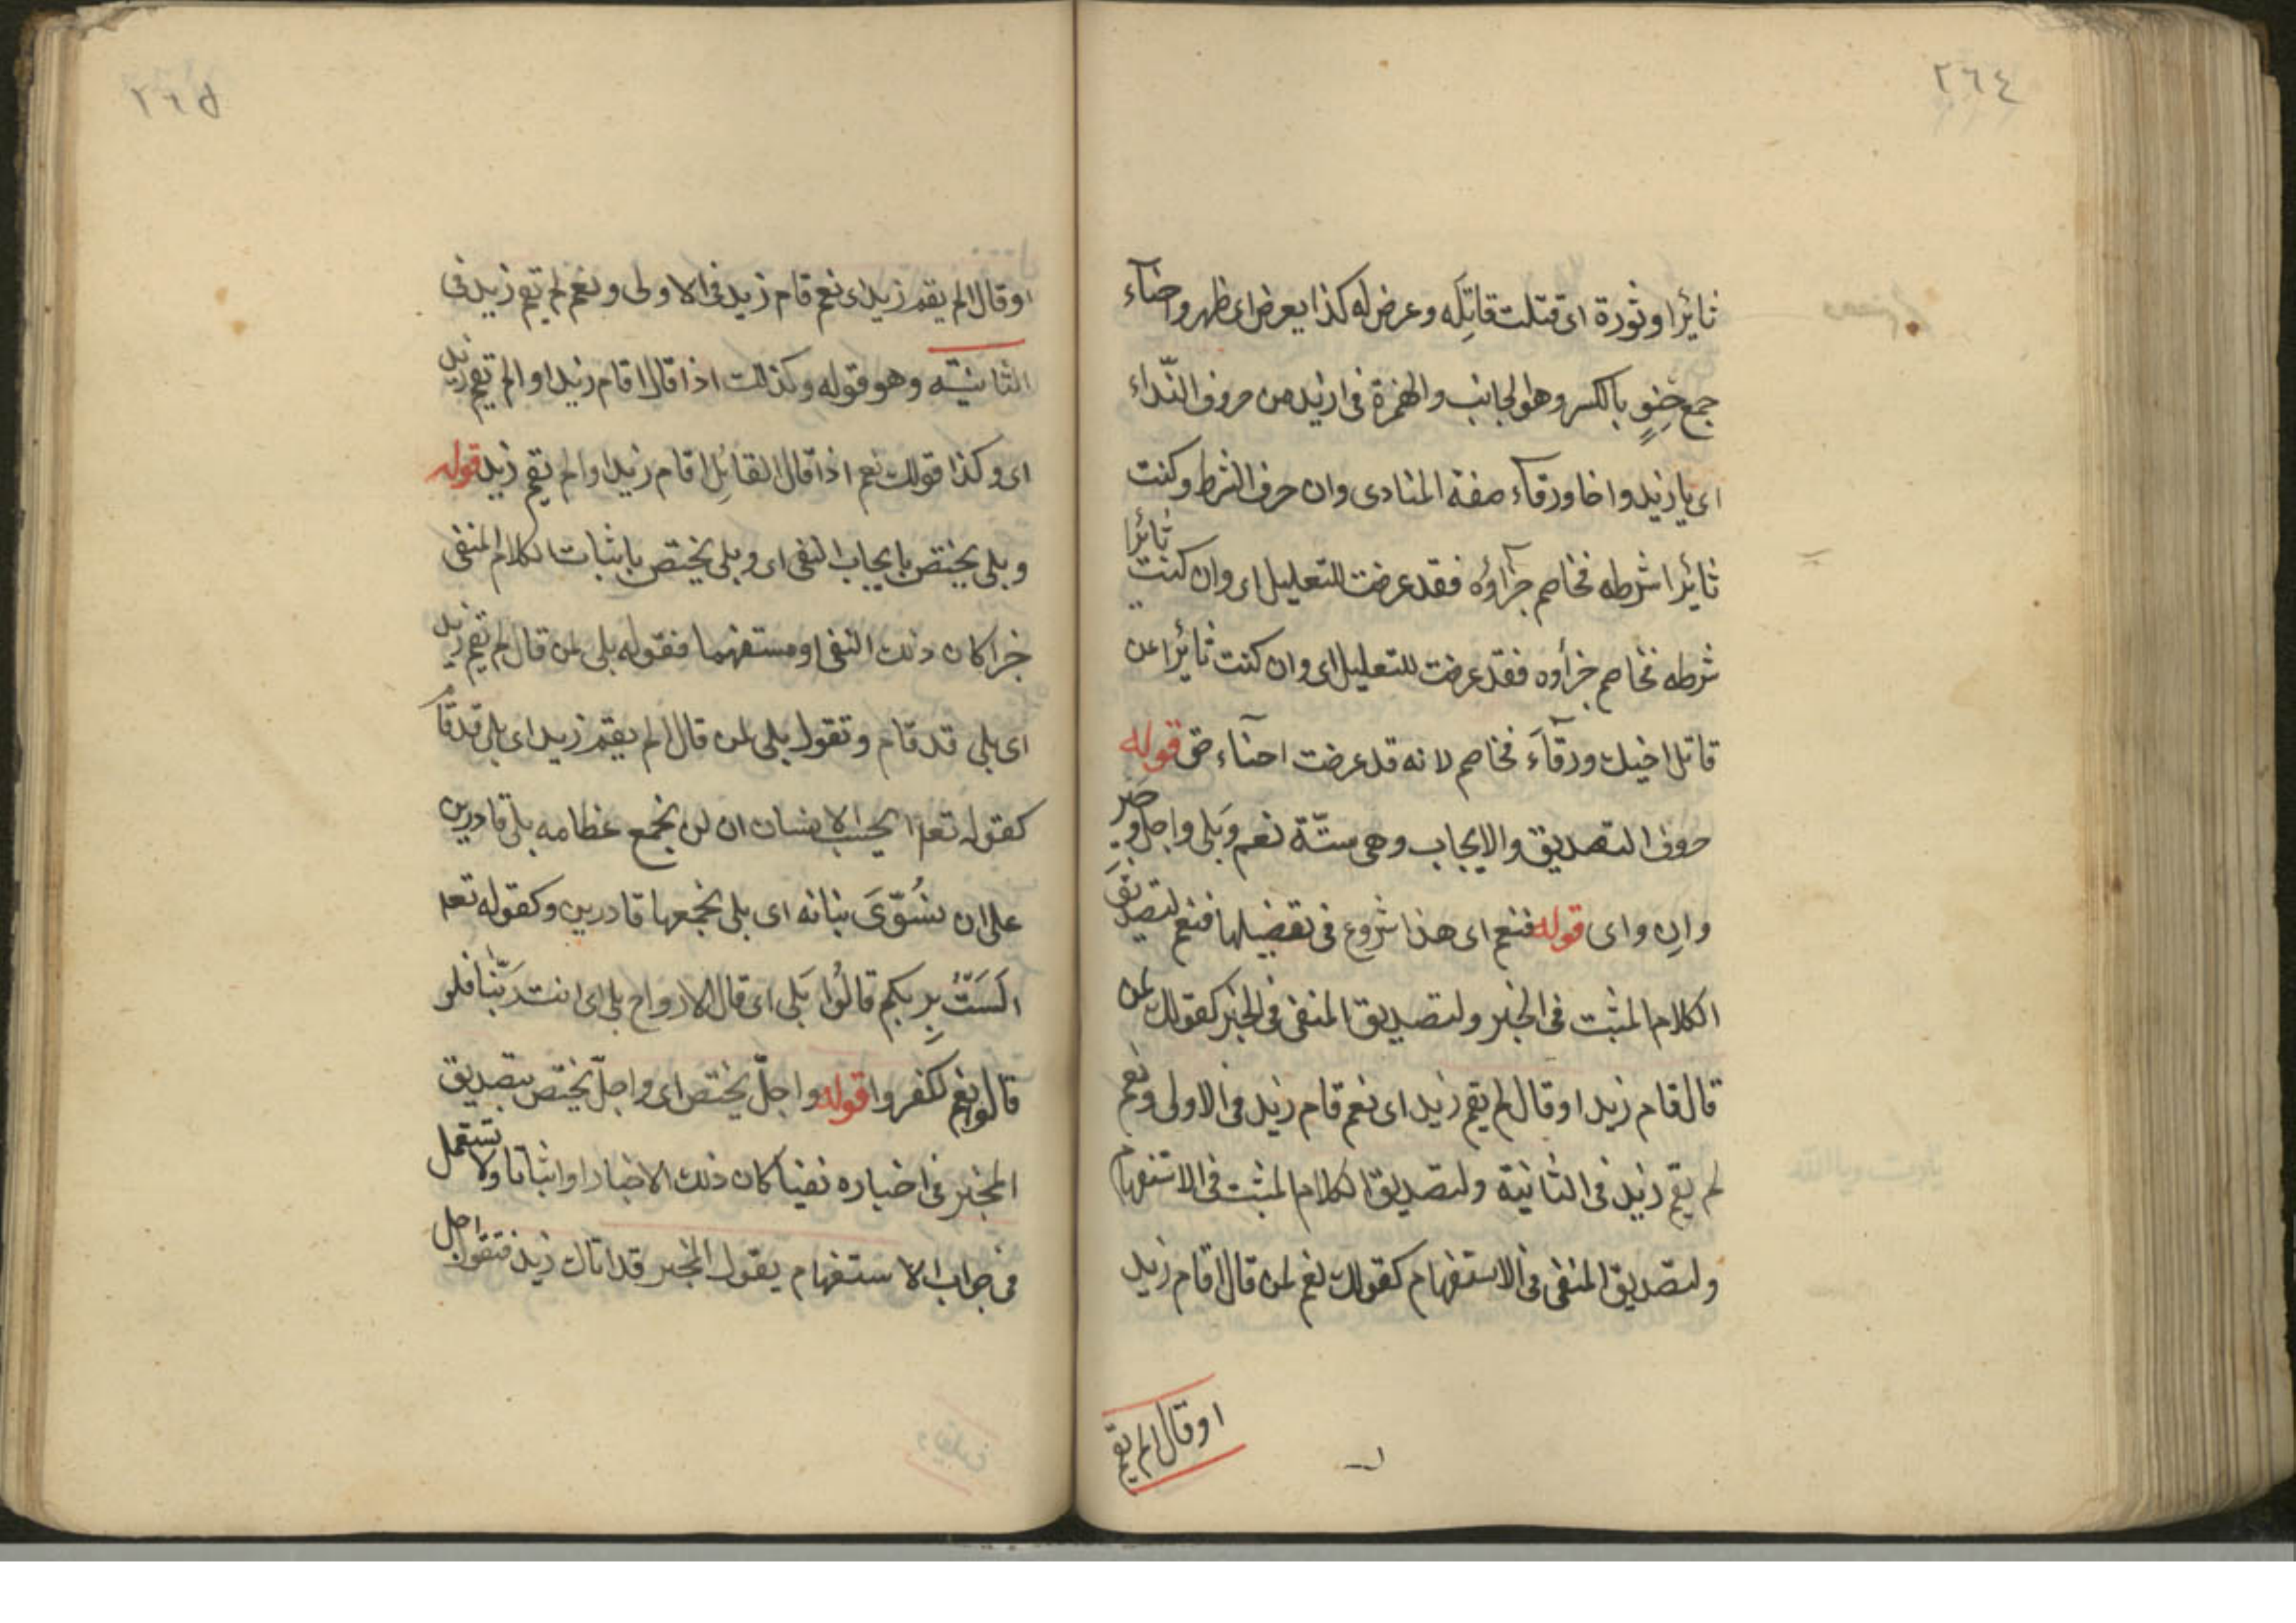 ٢٦٤
ثائرا وثورة اى قتلت قاتِلَه وعرض له كذا يعرض اى ظهر واحنآء
جمع حِنوٍ بالكسر وهو الجانب والهمزة فى ازيد من حروف النّداء
اى يا زيد واخا ورقآء صفة المنادى وان حرف الشرط وكنت
ثائرا شرطه فخاصم جزآؤه فقد عرضت للتعليل اى وان كنت ثائرا
شرطه فخاصم جزأوه فقد عرضت للتعليل اى وان كنت ثائرا عن
قاتل اخيك ورقآء فخاصم لانه قد عرضت احنآء حق قوله
حروف التصديق والايجاب وهى ستّة نعم وبَلى واجل وجير
وان واى قوله فنعم اى هذا شروع فى تفضيلها فنعم لتصديق
الكلام المثبت فى الخبر ولتصديق المنفى فى الخبر كقولك لمن
قال قام زيد او قال لم يقم زيد اى نعم قام زيد فى الاولى ونعم
لم يقم زيد فى الثانية ولتصديق الكلام المثبت فى الاستفهام
ولتصديق المنفى فى الاستفهام كقولك نعم لمن قال اقام زيد
او قال الم يقم
٢٦٥
او قال الم يقم زيد اى نعم قام زيد فى الاولى ونعم لم يقم زيد فى
الثانيّة وهو قوله وكذلك اذا قال اقام زيد او الم يقم زيد
اى وكذا قولك نعم اذا قال القائل اقام زيد او الم يقم زيد قوله
وبلى يختص بايجاب النفى اى وبلى يختص باثبات الكلام المنفى
خبرا كان ذلك النفى او مستفهما فقوله بلى لمن قال لم يقم زيد
اى بلى قد قام وتقول بلى لمن قال الم يقم زيد اى بلى قد قام
كقوله تعا ايحسب الانسان ان لن نجمع عظامه بلى قادرين
على ان نسُوّىَ بنانه اى بلى نجمعها قادرين وكقوله تعا
الَسَتُ بِربكم قالُوا بَلى اى قال الارواح بلى اى انت ربّنا فلو
قالوا نعم لكفروا قوله واجلّ يختص اى واجلّ يختص بتصديق
المخبر فى اخباره نفيا كان ذلك الاخبار او اثباتا ولا تستعمل
فى جواب الاستفهام يقول المخبر قد اتاك زيد فتقول اجل